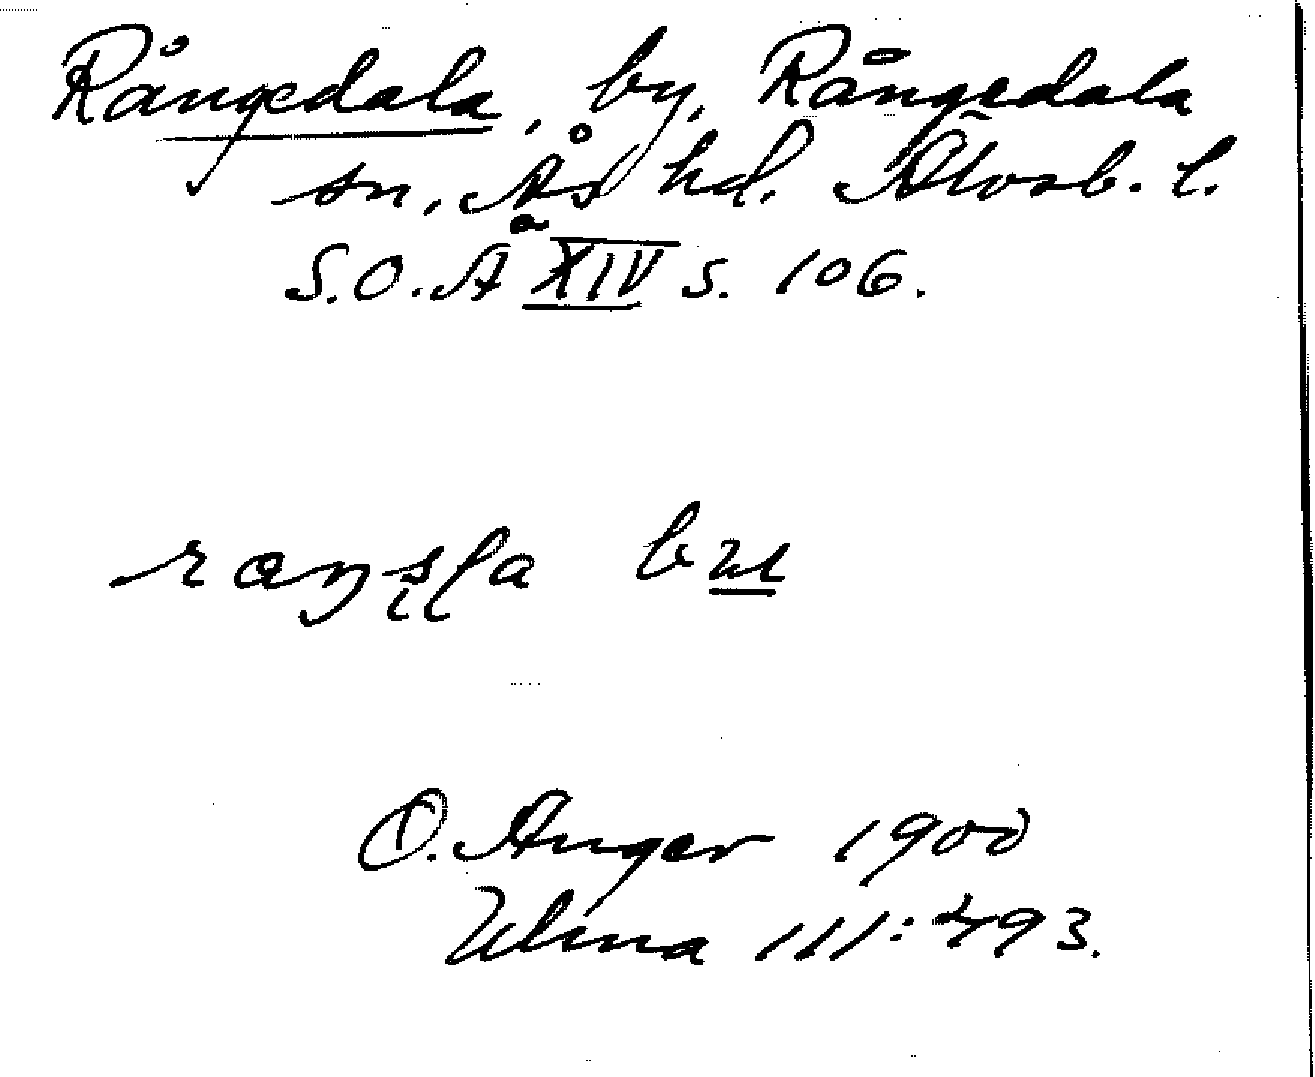 Rångedala, by, Rångedala
sn, Ås hd. Älvsb. l.
S.O.Ä XIV s. 106.
O. Anger 1900
Ulma 111:493.